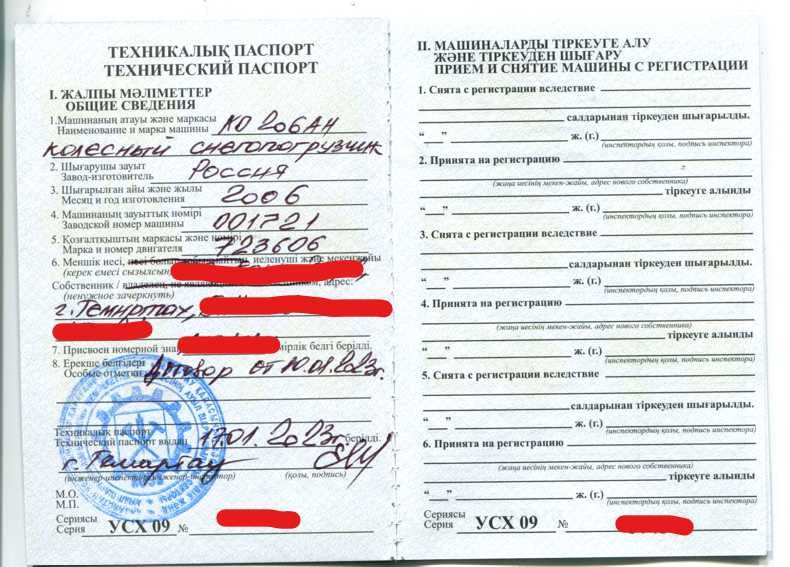 ТЕХНИКАЛЫҚ ПАСПОРТ
ТЕХНИЧЕСКИЙ ПАСПОРТ
I. ЖАЛПЫ МӘЛІМЕТТЕР
ОБЩИЕ СВЕДЕНИЯ
1.Машинаның атауы және маркасы
Наименование и марка машины КО 206АН
колесный снегопогрузчик
2. Шығарушы зауыт
Завод-изготовитель Россия
3. Шығарылған айы және жылы
Месяц и год изготовления 2006
4. Машинаның зауыттық нөмірі
Заводской номер машины 001721
5. Қозғалтқыштың маркасы және нөмірі
Марка и номер двигателя 723606
6. Меншік иесі, иеленуші және мекенжайы
(керек емесі сызылсын)
Собственник / владелец, адрес:
(ненужное зачеркнуть)
г. Темиртау,
7. Присвоен номерной белгі берілді.
8. Ерекше белгілері
Особые отметки Договор от 10.01.2023г.
Техникалық паспорт
Технический паспорт выдан 17.01. 2023г. берілді.
г. Темиртау
(қолы, подпись)
М.О.
М.П.
Сериясы
Серия УСХ 09 №
II. МАШИНАЛАРДЫ ТІРКЕУГЕ АЛУ
ЖӘНЕ ТІРКЕУДЕН ШЫҒАРУ
ПРИЕМ И СНЯТИЕ МАШИНЫ С РЕГИСТРАЦИИ
1. Снята с регистрации вследствие
салдарынан тіркеуден шығарылды.
“___” ж. (г.)
(инспектордың қолы, подпись инспектора)
2. Принята на регистрацию
(жаңа иесінің мекен-жайы, адрес нового собственника)
тіркеуге алынды
“___” ж. (г.)
(инспектордың қолы, подпись инспектора)
3. Снята с регистрации вследствие
салдарынан тіркеуден шығарылды.
“___” ж. (г.)
(инспектордың қолы, подпись инспектора)
4. Принята на регистрацию
(жаңа иесінің мекен-жайы, адрес нового собственника)
тіркеуге алынды
“___” ж. (г.)
(инспектордың қолы, подпись инспектора)
5. Снята с регистрации вследствие
салдарынан тіркеуден шығарылды.
“___” ж. (г.)
(инспектордың қолы, подпись инспектора)
6. Принята на регистрацию
(жаңа иесінің мекен-жайы, адрес нового собственника)
тіркеуге алынды
“___” ж. (г.)
(инспектордың қолы, подпись инспектора)
Сериясы
Серия УСХ 09 №